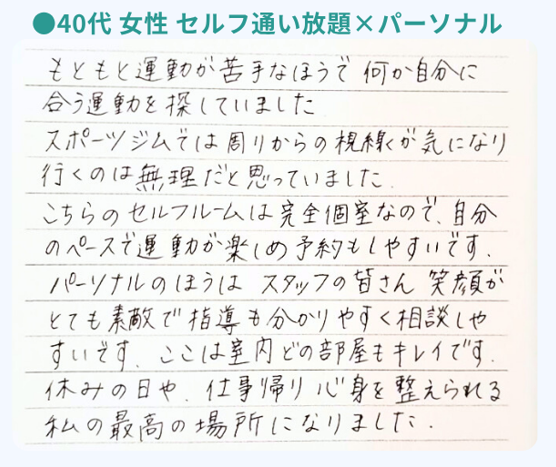 ●40代 女性 セルフ通い放題×パーソナル
もともと運動が苦手なほうで 何か自分に
合う運動を探していました
スポーツジムでは周りからの視線が気になり
行くのは無理だと思っていました.
こちらのセルフルームは完全個室なので、自分
のペースで運動が楽しめ予約もしやすいです.
パーソナルのほうは スタッフの皆さん 笑顔が
とても素敵で指導も分かりやすく相談しや
すいです. ここは室内どの部屋もキレイです.
休みの日や. 仕事帰り 心身を整えられる
私の最高の場所になりました.